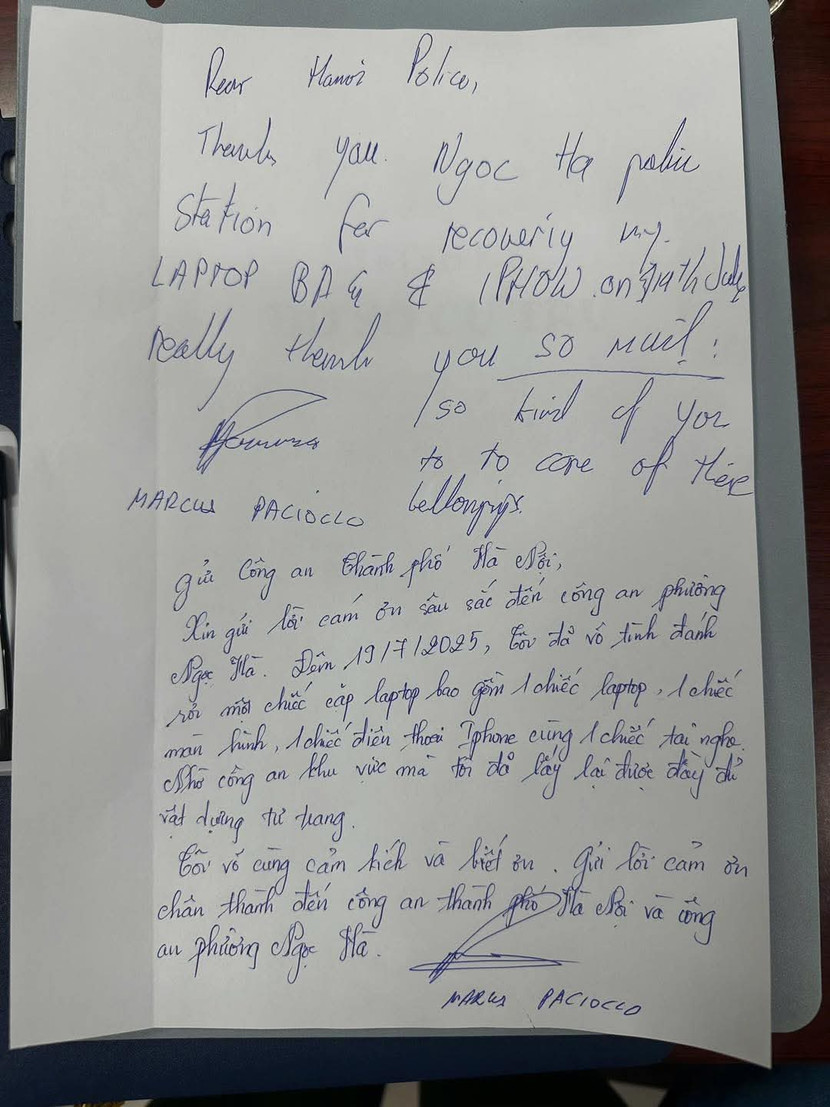 Dear Hanoi Police,
Thanks you Ngoc Ha police
Station for recoveriy my
LAPTOP BAG & IPHOW on 19th July
really thank you so much!
so kind of you
to to care of these
bellongings.
MARCUS PACIOCCO
gửi Công an thành phố Hà Nội,
Xin gửi lời cảm ơn sâu sắc đến công an phường
Ngọc Hà. Đêm 19/7/2025, tôi đã vô tình đánh
rơi một chiếc cặp laptop bao gồm 1 chiếc laptop, 1 chiếc
màn hình, 1 chiếc điện thoại Iphone cùng 1 chiếc tai nghe.
Nhờ công an khu vực mà tôi đã lấy lại được đầy đủ
vật dụng tư trang.
Tôi vô cùng cảm kích và biết ơn. Gửi lời cảm ơn
chân thành đến công an thành phố Hà Nội và công
an phường Ngọc Hà.
MARCUS PACIOCCO